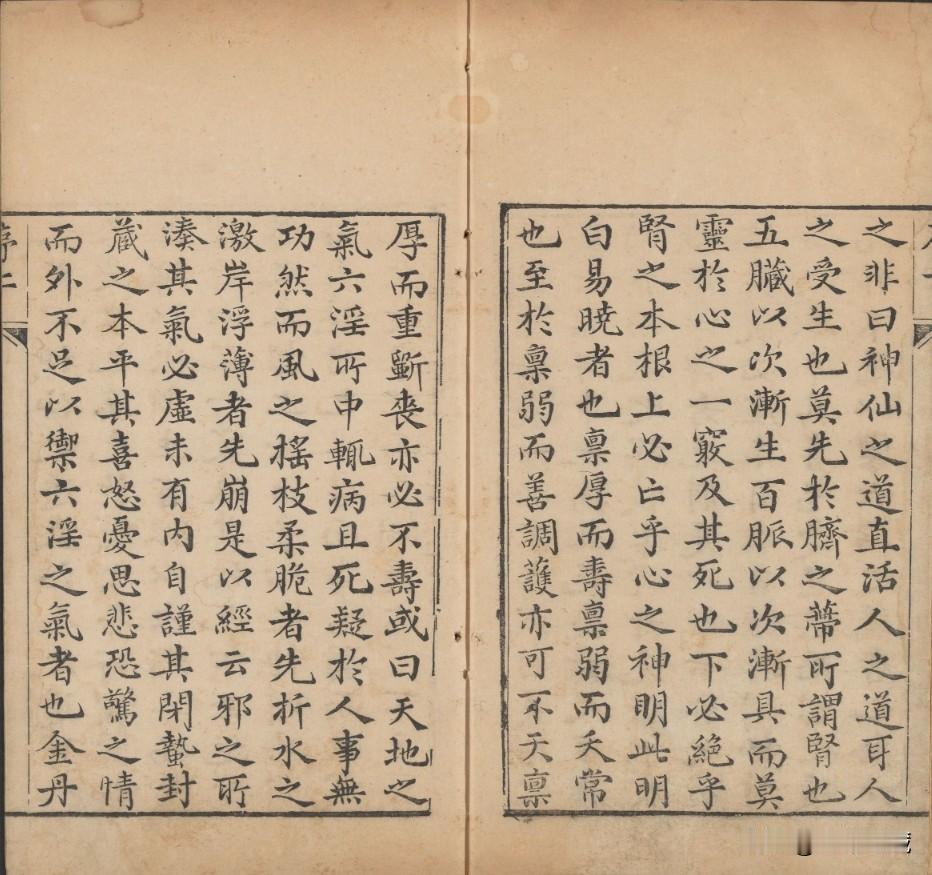 之非曰神仙之道直活人之道耳人
之受生也莫先於臍之蒂所謂腎也
五臟以次漸生百脈以次漸具而莫
靈於心之一竅及其死也下必絕乎
腎之本根上必亡乎心之神明此明
白易曉者也稟厚而壽稟弱而夭常
也至於稟弱而善調護亦可不夭稟
厚而重斵喪亦必不壽或曰天地之
氣六淫所中輒病且死疑於人事無
功然而風之搖枝柔脆者先折水之
激岸浮薄者先崩是以經云邪之所
湊其氣必虛未有內自謹其閉蟄封
藏之本平其喜怒憂思悲恐驚之情
而外不足以禦六淫之氣者也金丹
序二